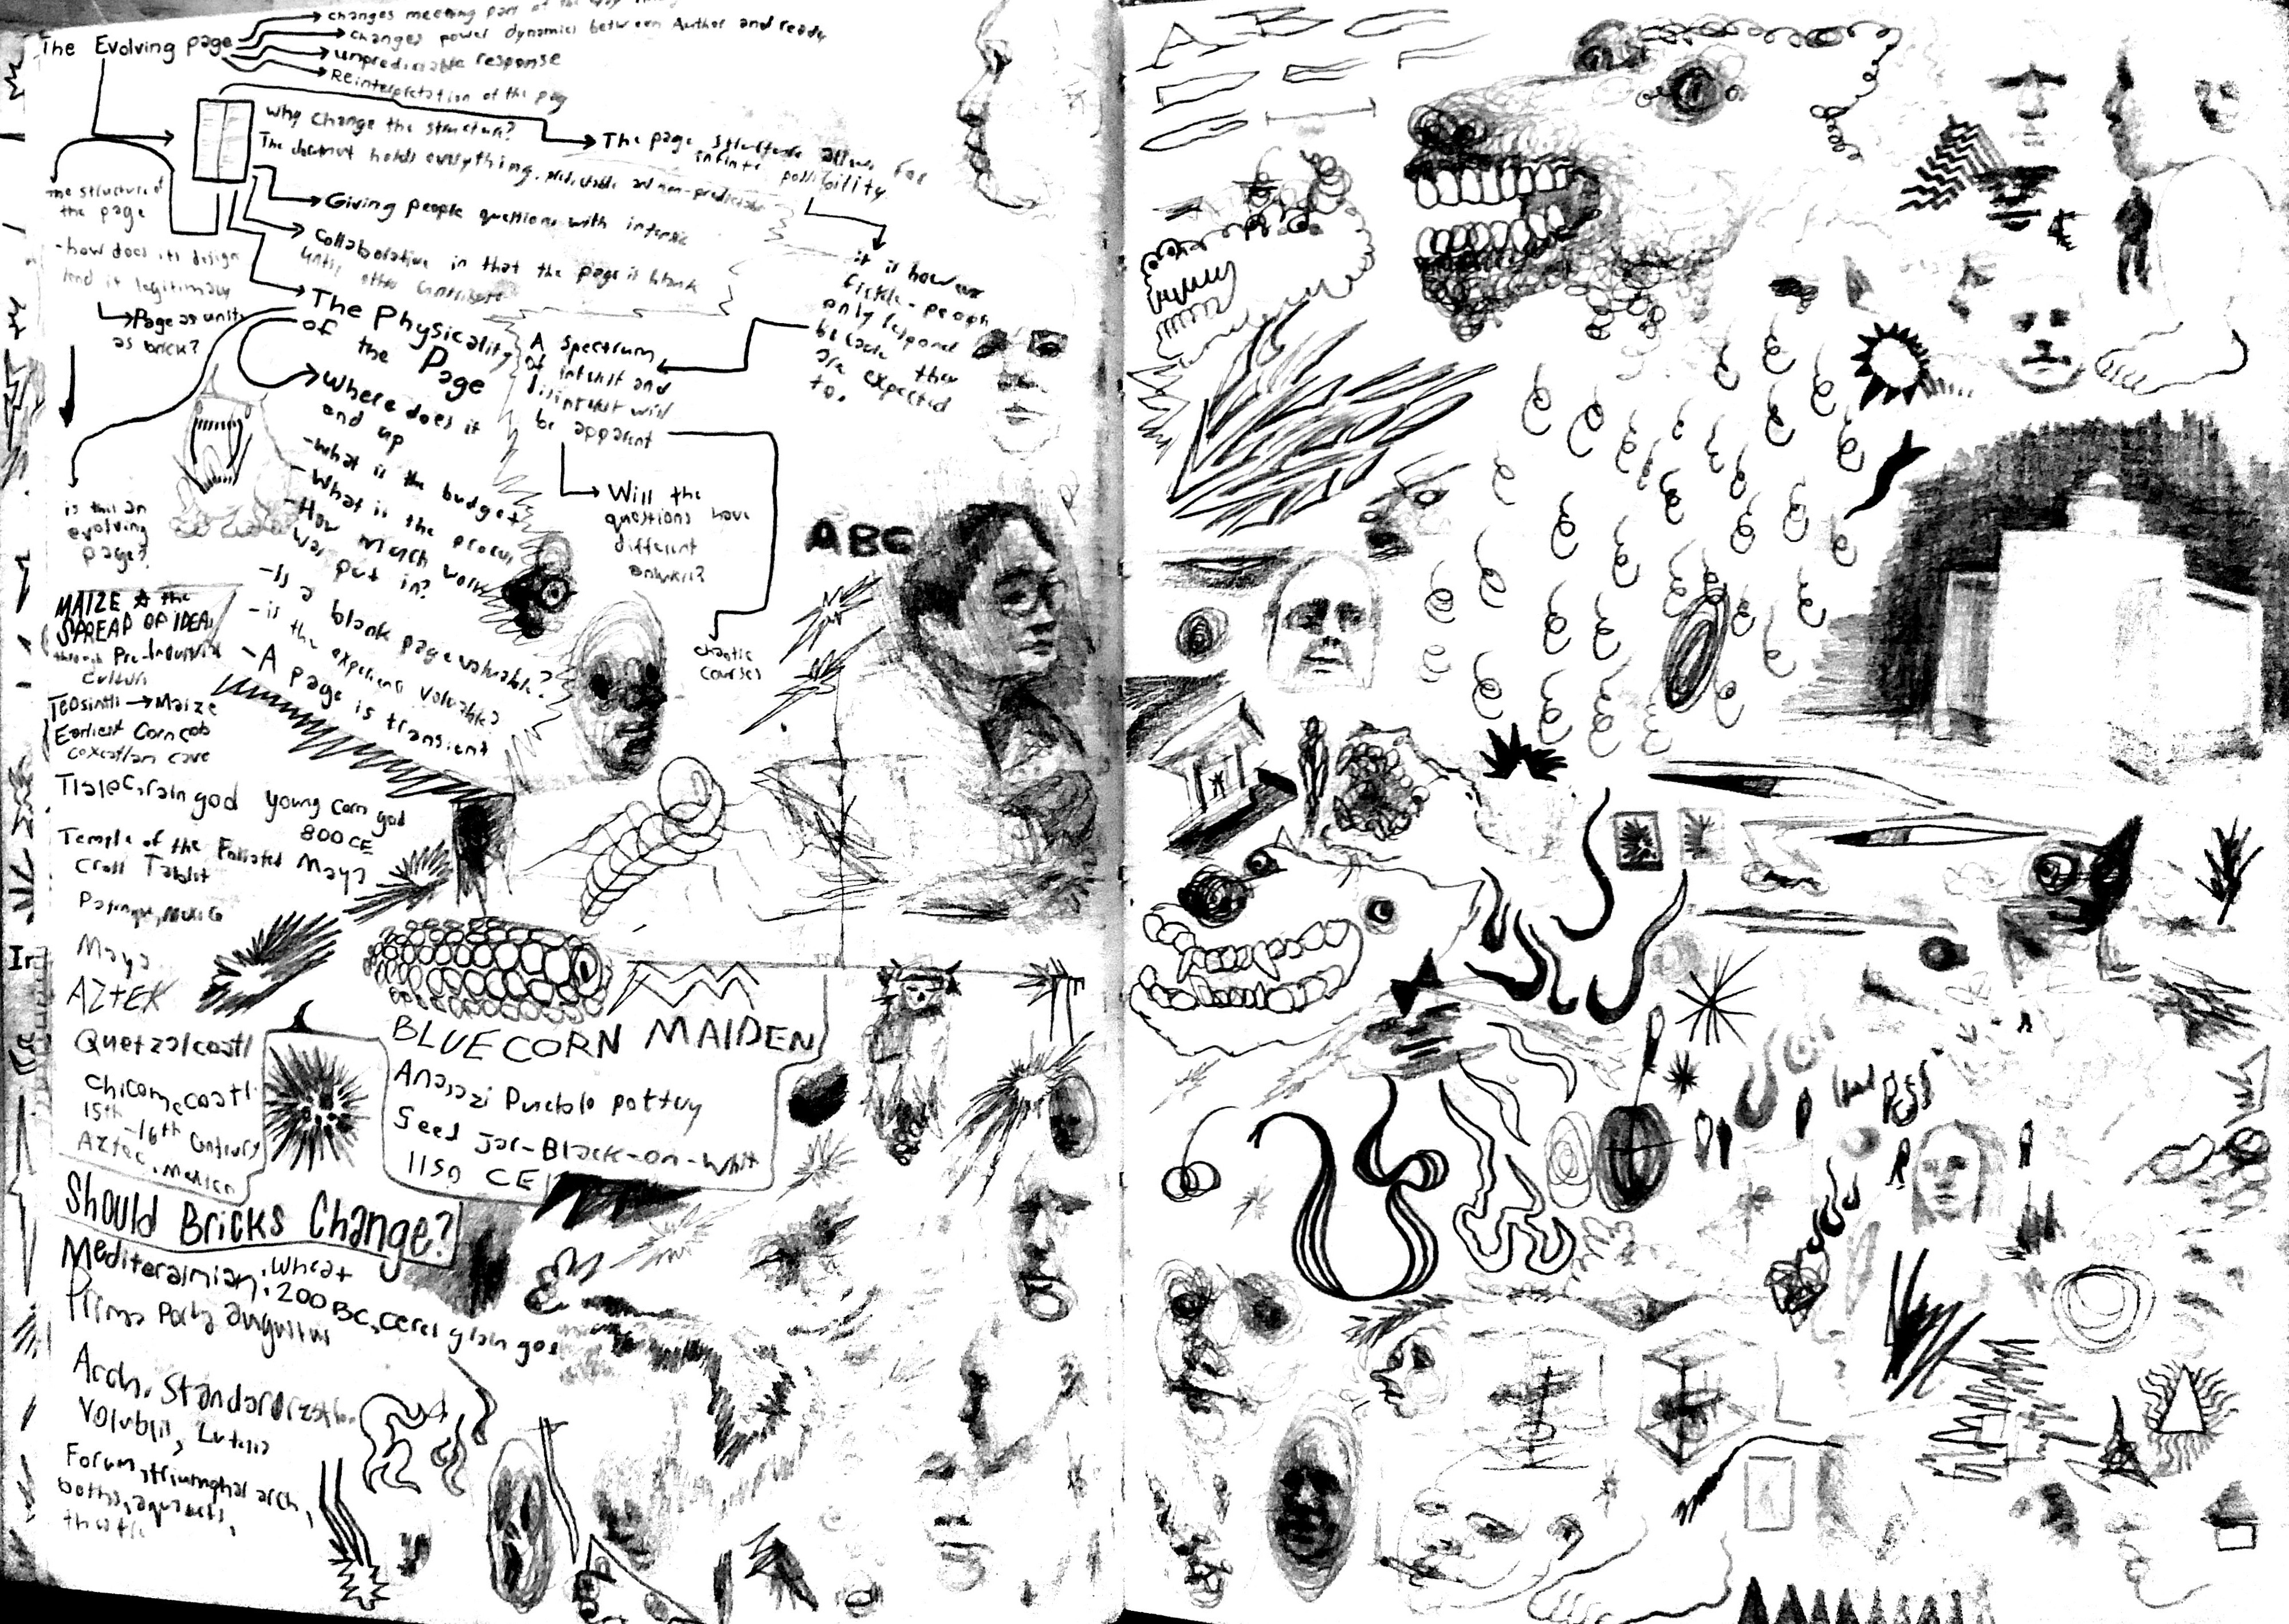 changes meeting part of the
The Evolving page
changes power dynamics between Author and ready
unpredictable response
Reinterpretation of the pag
Why change the structure?
The page structure allows for
infinite possibility
holds everything, predictable and non-predictable
the structure of
the page
Giving people questions with intersic
-how does its design
lend it legitimacy
Collaborative in that the page is blank
until other contribute
it is however
fickle-people
only respond
because they
are expected
to.
Page as unit
as brick?
The Physicality
of the Page
A spectrum
of interest and
disinterest will
be apparent
Where does it
end up
-What is the budget
-What is the process
-How much work
was put in?
-Is a blank page valuable?
-is the experience valuable?
-A page is transient
Will the
questions have
different
is this an
evolving
page?
ABC
chaotic
courses
MAIZE & the
SPREAD OF IDEA
through Pre-Industrial
Culture
Teosinti → Maize
Earliest Corn cob
coxcatlan cave
Tlaloc, rain god
young corn god
800 CE
Maya
Temple of the Foliated
Cross Tablet
Maya
AZTEK
Quetzalcoatl
Chicomecoatl
15th-16th Century
Aztec, Mexico
BLUE CORN MAIDEN
Anasazi Pueblo pottery
Seed Jar-Black-on-Whit
1150 CE
Should Bricks Change?
Mediterainian: Wheat
200 BC, Ceres grain
Prima Porta augustus
Arch, Standardization
Volublis, Lutetia
Forum, triumphal arch,
baths, aquaducts,
theatre